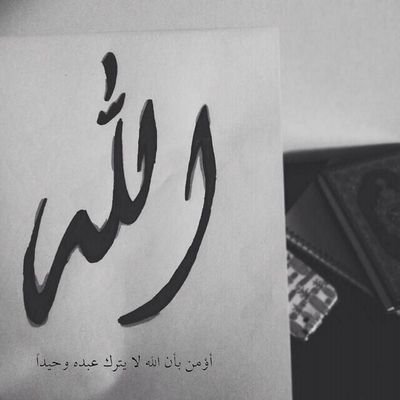 الله
أؤمن بأن الله لا يترك عبده وحيداً